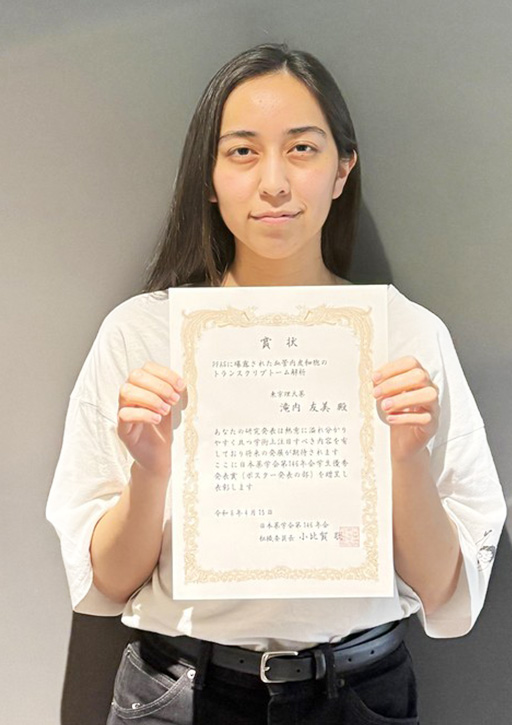 賞状
に曝露された血管内皮細胞の
トランスクリプトーム解析
東京理大薬
滝内 友美 殿
あなたの研究発表は熱意に溢れ分かり
やすく且つ学術上注目すべき内容を有
しており将来の発展が期待されます
ここに日本薬学会第144年会学生優秀
発表賞（ポスター発表の部）を贈呈し
表彰します
令和6年4月15日
日本薬学会第144年会
組織委員長 小比賀 聡